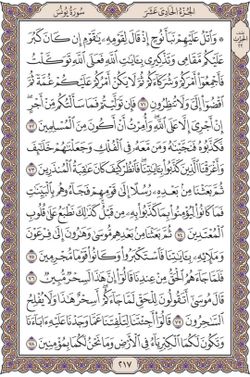 الجزء الحادي عشر سورة يونس
۞ وَٱتْلُ عَلَيْهِمْ نَبَأَ نُوحٍ إِذْ قَالَ لِقَوْمِهِۦ يَٰقَوْمِ إِن كَانَ كَبُرَ
عَلَيْكُم مَّقَامِى وَتَذْكِيرِى بِـَٔايَٰتِ ٱللَّهِ فَعَلَى ٱللَّهِ تَوَكَّلْتُ
فَأَجْمِعُوٓا۟ أَمْرَكُمْ وَشُرَكَآءَكُمْ ثُمَّ لَا يَكُنْ أَمْرُكُمْ عَلَيْكُمْ غُمَّةً ثُمَّ
ٱقْضُوٓا۟ إِلَىَّ وَلَا تُنظِرُونِ ۝٧١ فَإِن تَوَلَّيْتُمْ فَمَا سَأَلْتُكُم مِّنْ أَجْرٍ
إِنْ أَجْرِىَ إِلَّا عَلَى ٱللَّهِ وَأُمِرْتُ أَنْ أَكُونَ مِنَ ٱلْمُسْلِمِينَ ۝٧٢
فَكَذَّبُوهُ فَنَجَّيْنَٰهُ وَمَن مَّعَهُۥ فِى ٱلْفُلْكِ وَجَعَلْنَٰهُمْ خَلَٰٓئِفَ
وَأَغْرَقْنَا ٱلَّذِينَ كَذَّبُوا۟ بِـَٔايَٰتِنَا فَٱنظُرْ كَيْفَ كَانَ عَٰقِبَةُ ٱلْمُنذَرِينَ ۝٧٣
ثُمَّ بَعَثْنَا مِنۢ بَعْدِهِۦ رُسُلًا إِلَىٰ قَوْمِهِمْ فَجَآءُوهُم بِٱلْبَيِّنَٰتِ
فَمَا كَانُوا۟ لِيُؤْمِنُوا۟ بِمَا كَذَّبُوا۟ بِهِۦ مِن قَبْلُ كَذَٰلِكَ نَطْبَعُ عَلَىٰ قُلُوبِ
ٱلْمُعْتَدِينَ ۝٧٤ ثُمَّ بَعَثْنَا مِنۢ بَعْدِهِم مُّوسَىٰ وَهَٰرُونَ إِلَىٰ فِرْعَوْنَ
وَمَلَإِي۟هِۦ بِـَٔايَٰتِنَا فَٱسْتَكْبَرُوا۟ وَكَانُوا۟ قَوْمًا مُّجْرِمِينَ ۝٧٥
فَلَمَّا جَآءَهُمُ ٱلْحَقُّ مِنْ عِندِنَا قَالُوٓا۟ إِنَّ هَٰذَا لَسِحْرٌ مُّبِينٌ ۝٧٦
قَالَ مُوسَىٰٓ أَتَقُولُونَ لِلْحَقِّ لَمَّا جَآءَكُمْ أَسِحْرٌ هَٰذَا وَلَا يُفْلِحُ
ٱلسَّٰحِرُونَ ۝٧٧ قَالُوٓا۟ أَجِئْتَنَا لِتَلْفِتَنَا عَمَّا وَجَدْنَا عَلَيْهِ ءَابَآءَنَا
وَتَكُونَ لَكُمَا ٱلْكِبْرِيَآءُ فِى ٱلْأَرْضِ وَمَا نَحْنُ لَكُمَا بِمُؤْمِنِينَ ۝٧٨
٢١٧